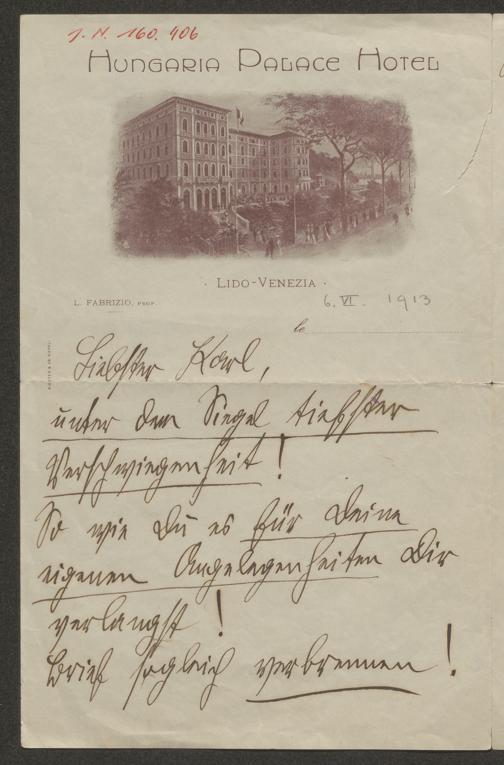 J. N. 160.406
HUNGARIA PALACE HOTEL
· LIDO-VENEZIA ·
L. FABRIZIO, PROP.
6. VI. 1913
le
Liebster Karl,
unter dem Siegel tiefster
Verschwiegenheit!
So wie Du es für Deine
eigenen Angelegenheiten Dir
verlangst!
Brief sogleich verbrennen!